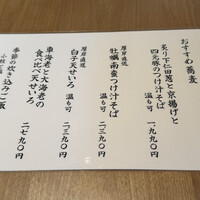 おすすめ蕎麦
炙り下仁田葱と京揚げと
四元豚のつけ汁そば
一、九九〇円
厚岸直送
牡蠣南蛮つけ汁そば
温も可
二、三九〇円
厚岸直送
白子天せいろ
温も可
二、三九〇円
車海老と大海老の
食べ比べ天せいろ
温も可
二、七九〇円
季節の炊き込みご飯